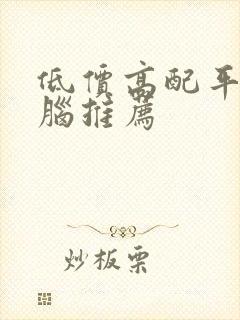 低價高配平
腦推薦
炒板栗